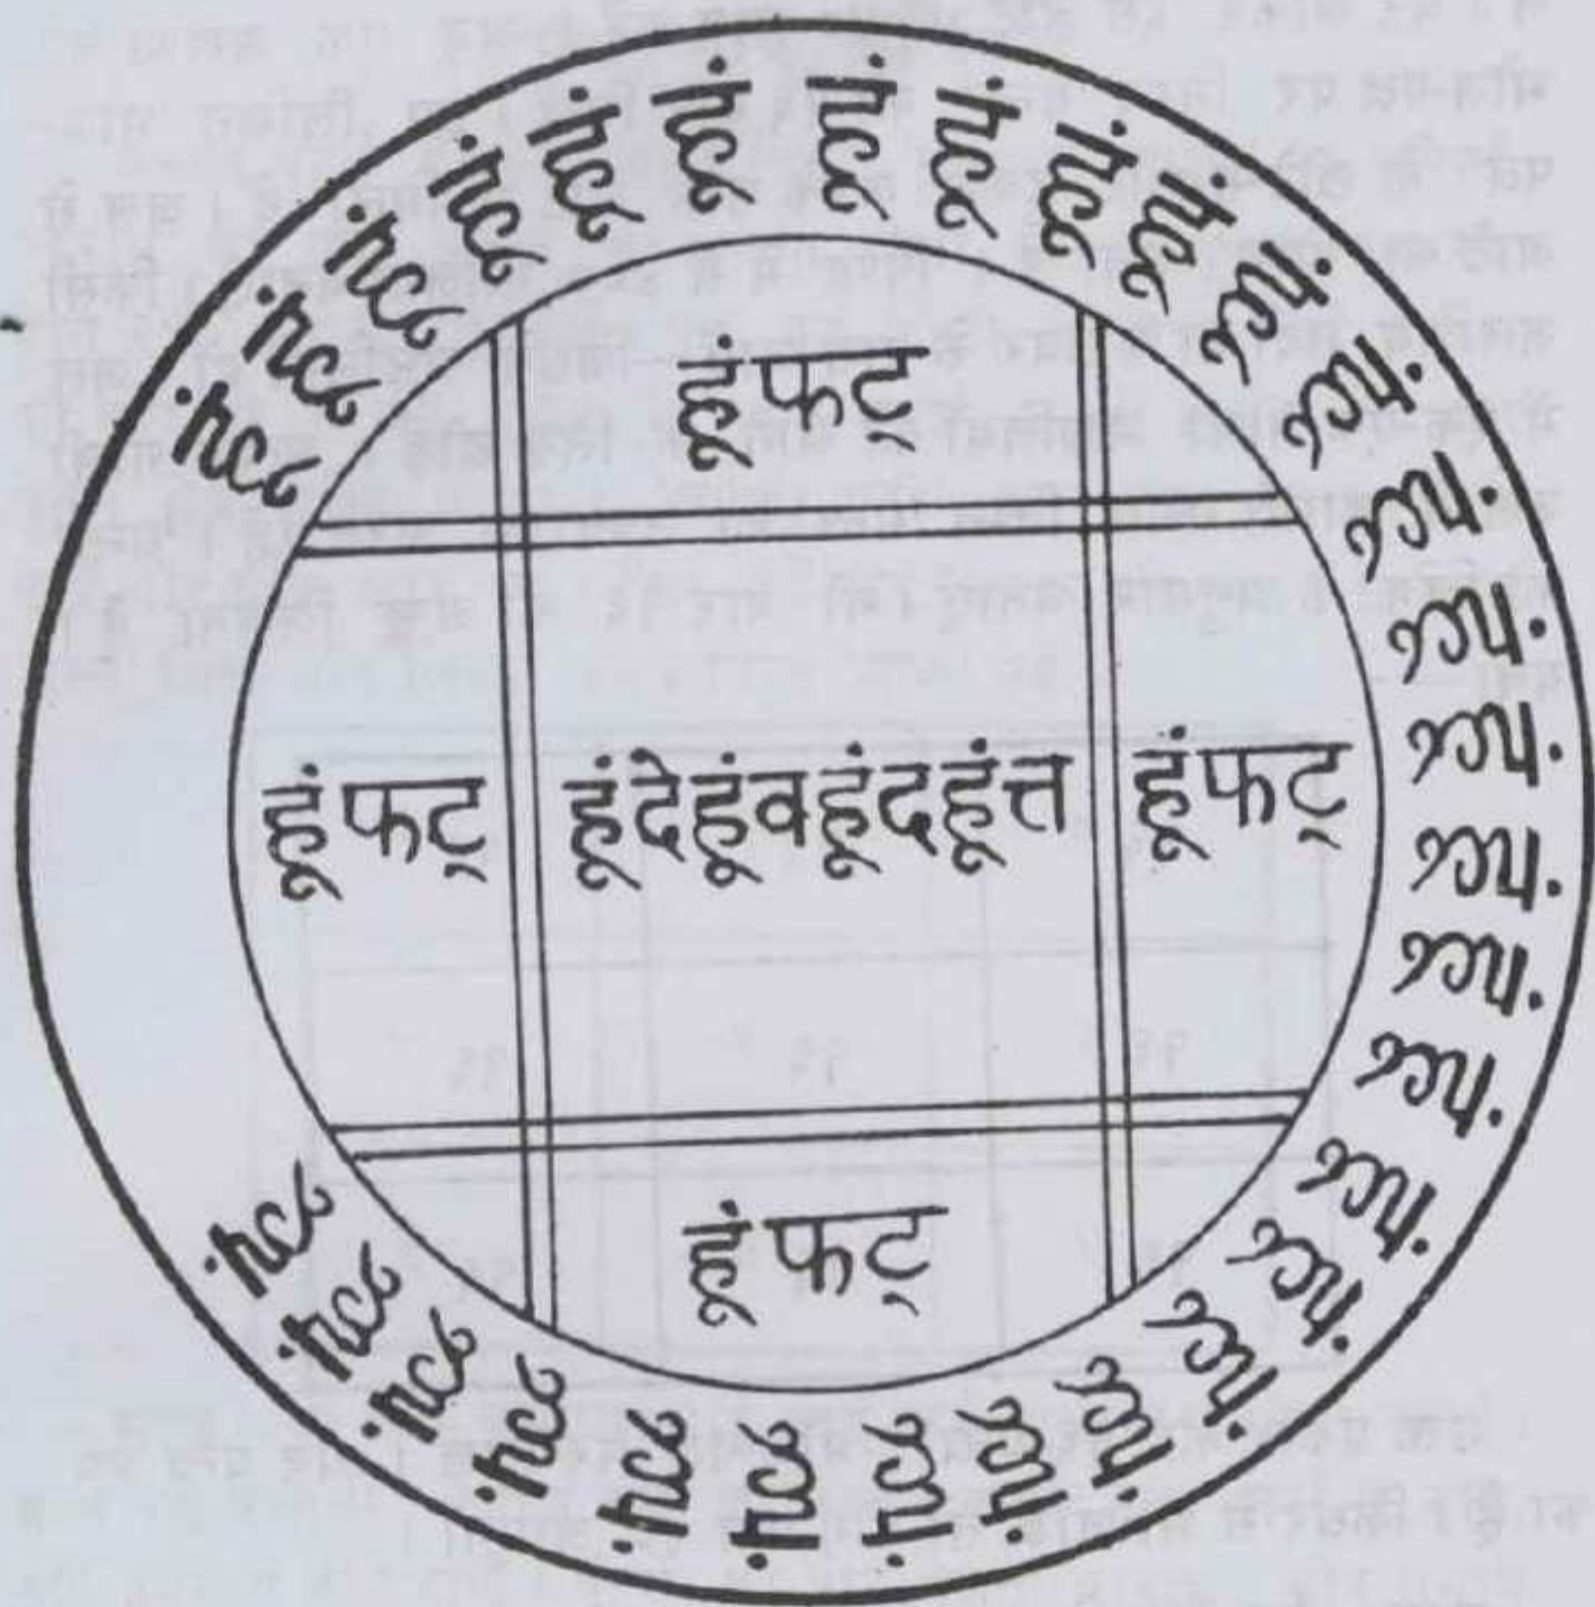 हूं हूं हूं हूं हूं हूं हूं हूं हूं हूं हूं हूं हूं हूं हूं हूं हूं हूं हूं हूं हूं हूं हूं हूं हूं हूं हूं हूं हूं हूं
हूंफट्
हूंफट् हूंदेहूंवहूंदहूंत्त हूंफट्
हूंफट्